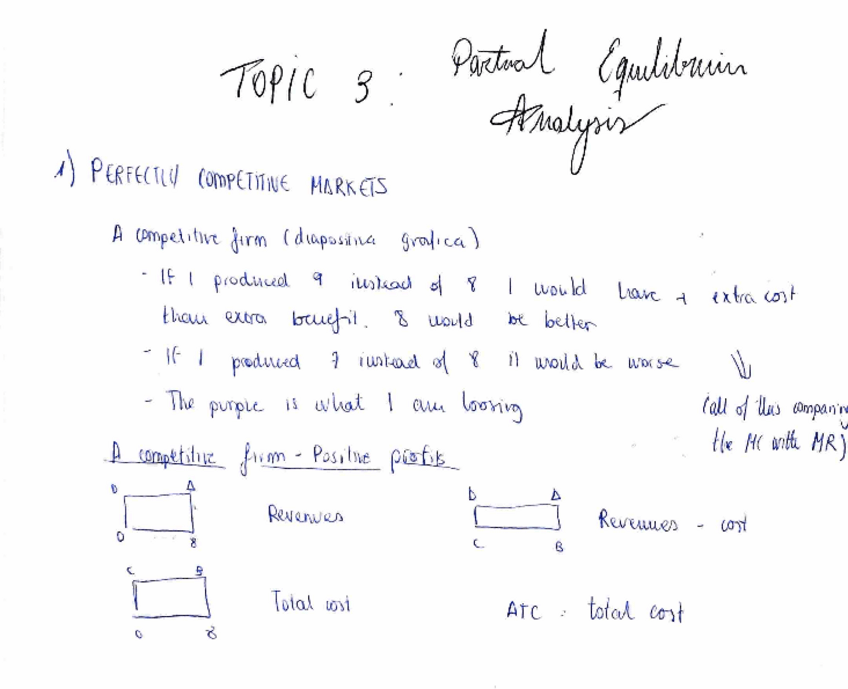 TOPIC 3: Partial Equilibrium
Analysis
1) PERFECTLY COMPETITIVE MARKETS
A competitive firm (diapositiva grafica)
- If I produced 9 instead of 8 I would have + extra cost
than extra benefit. 8 would be better
- If I produced 7 instead of 8 it would be worse
- The purple is what I am loosing
(all of this comparing
the MC with MR)
A competitive firm - Positive profits
D A
Revenues
0 8
D A
Revenues - cost
C B
C B
Total cost
0 8
ATC : total cost